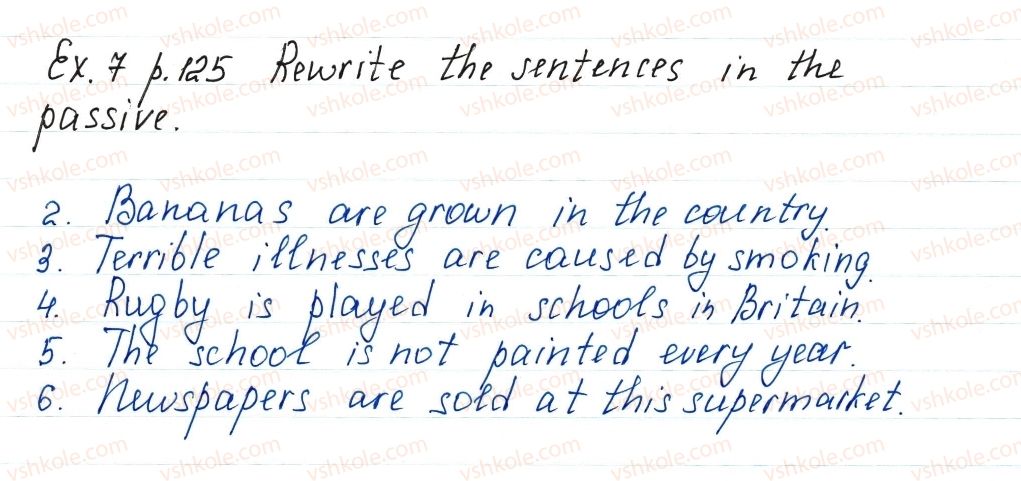 Ex. 7 p. 125 Rewrite the sentences in the
passive.
2. Bananas are grown in the country.
3. Terrible illnesses are caused by smoking.
4. Rugby is played in schools in Britain.
5. The school is not painted every year.
6. Newspapers are sold at this supermarket.